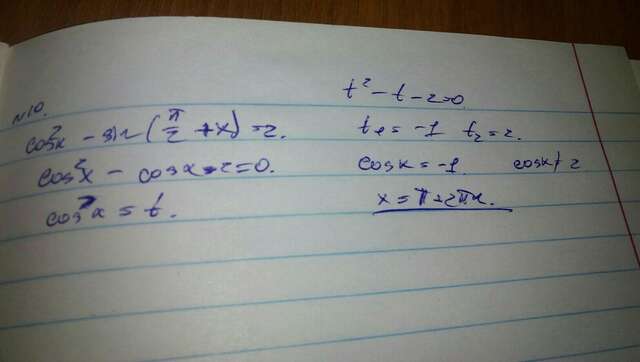 №10.
cos²x - sin(π/2 + x) = 2.
cos²x - cosx - 2 = 0.
cos x = t.
t² - t - 2 = 0
t₁ = -1 t₂ = 2.
cosx = -1. cosx ≠ 2
x = π + 2πn.